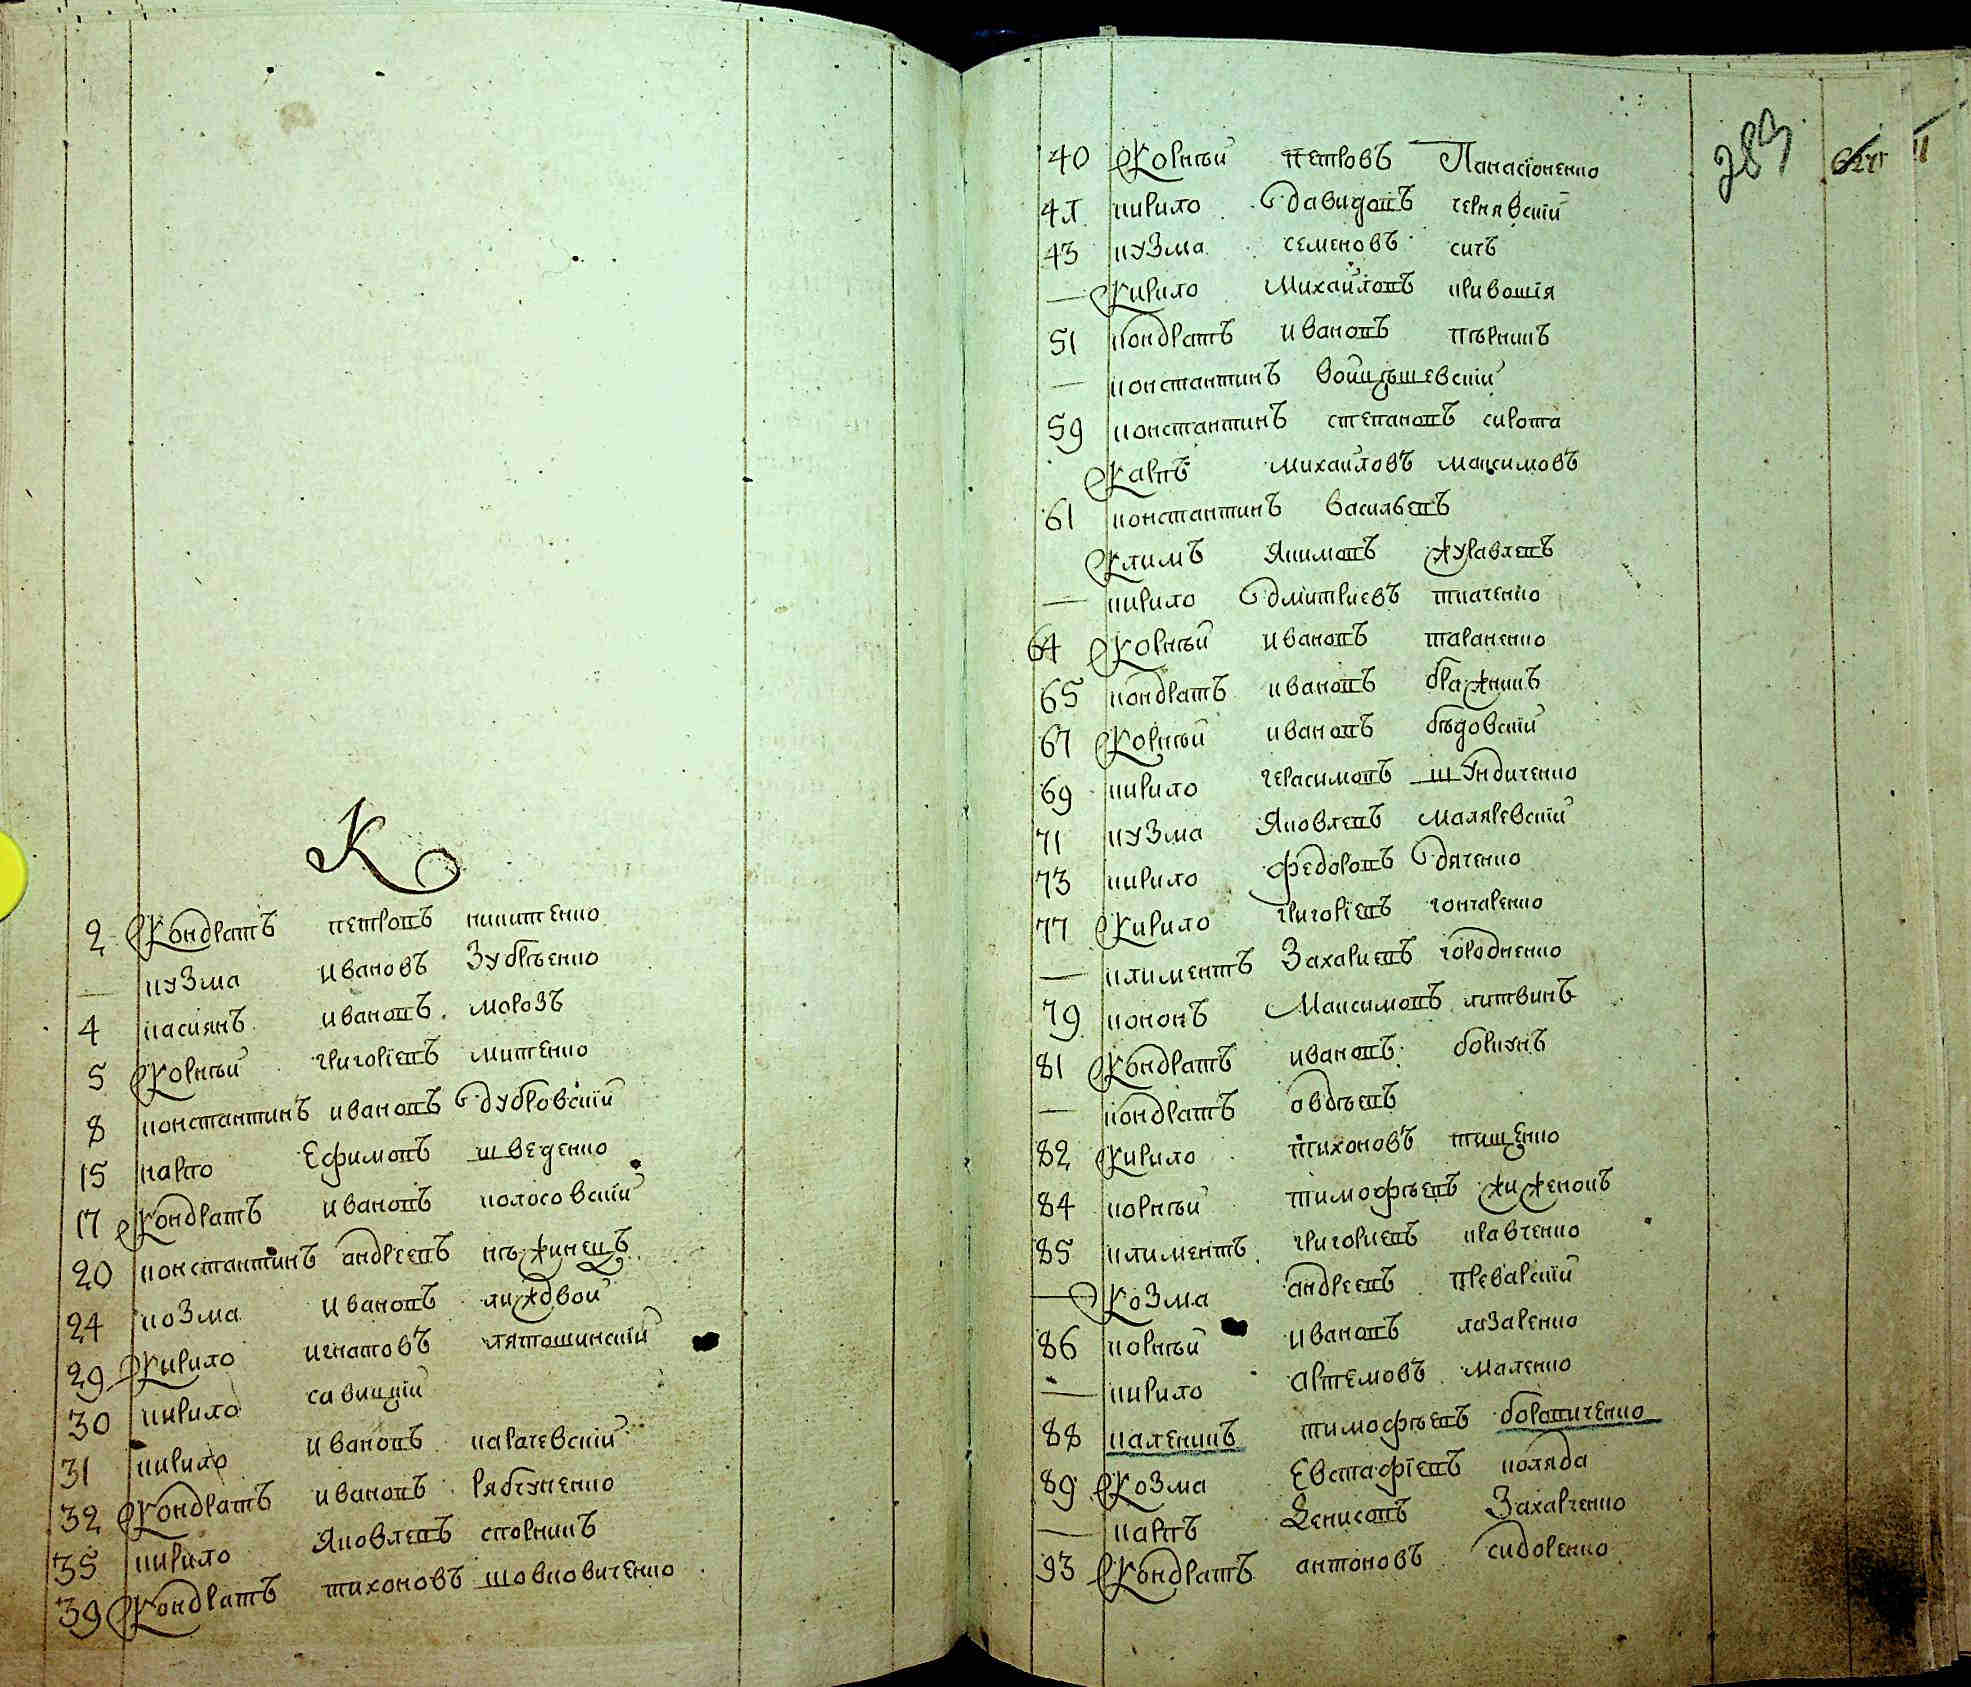 К
2 Кондратъ петровъ никитенко
— кузма ивановъ Зубрѣенко
4 касиянъ ивановъ морозъ
5 Корнѣй григорїевъ митенко
8 константинъ ивановъ дубровскїй
15 карпо Ефимовъ шведенко
17 Кондратъ ивановъ колосовскїй
20 константинъ андреевъ нѣжинецъ
24 козма ивановъ лиходвой
29 Кирило игнатовъ лятошинскїй
30 кирило савицкїй
31 кирило ивановъ карачевскїй
32 Кондратъ ивановъ рябчуненко
35 кирило Яковлевъ сторникъ
39 Кондратъ тихоновъ шовковиченко
283
40 Корнѣй петровъ Панасїоненко
41 кирило давидовъ чернявскїй
43 кузма семеновъ сичъ
— Кирило Михайловъ кривошїя
51 кондратъ ивановъ пѣрникъ
— константинъ войцѣшевскїй
59 константинъ степановъ сирота
Карпъ михайловъ максимовъ
61 константинъ васильевъ
Климъ Якимовъ журавлевъ
— кирило дмїитриевъ ткаченко
64 Корнѣй ивановъ тараненко
65 кондратъ ивановъ бражникъ
67 Корнѣй ивановъ бѣдовскїй
69 кирило герасимовъ шундиченко
71 кузма Яковлевъ маляревскїй
73 кирило федоровъ дяченко
77 Кирило григорїевъ гончаренко
— климентъ Захариевъ городненко
79 кононъ Максимовъ литвинъ
81 Кондратъ ивановъ боркунъ
— кондратъ овдѣевъ
82 Кирило тихоновъ тищенко
84 корнѣй тимофѣевъ жиженокъ
85 климентъ григориевъ кравченко
— Козма андреевъ преварскїй
86 корнѣй ивановъ лазаренко
— кирило артемовъ маленко
88 каленикъ тимофѣевъ боровиченко
89 Козма Евстафїевъ коляда
— карпъ Денисовъ Захарченко
93 Кондратъ антоновъ сидоренко